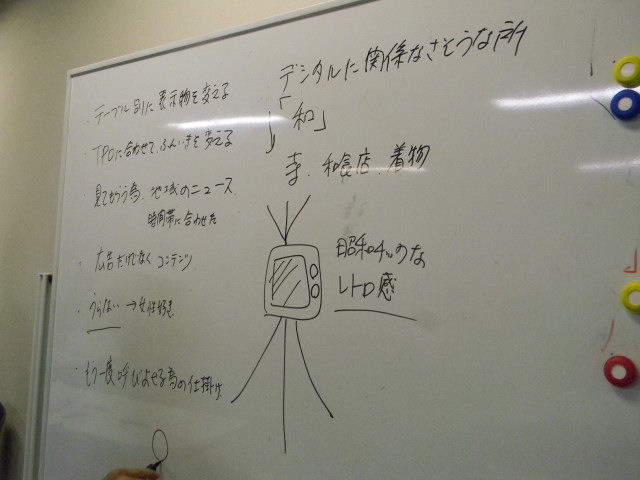 ・テーブル別に表示物を変える
・TPOに合わせて、ふんいきを変える
・見てもらう為、地域のニュース
時間帯に合わせた
・広告だけでなくコンテンツ
・うらない→女性好き
・もう一度呼びよせる為の仕掛け
デジタルに関係なさそうな所
↓「和」
寺、和食店、着物
昭和チックな
レトロ感